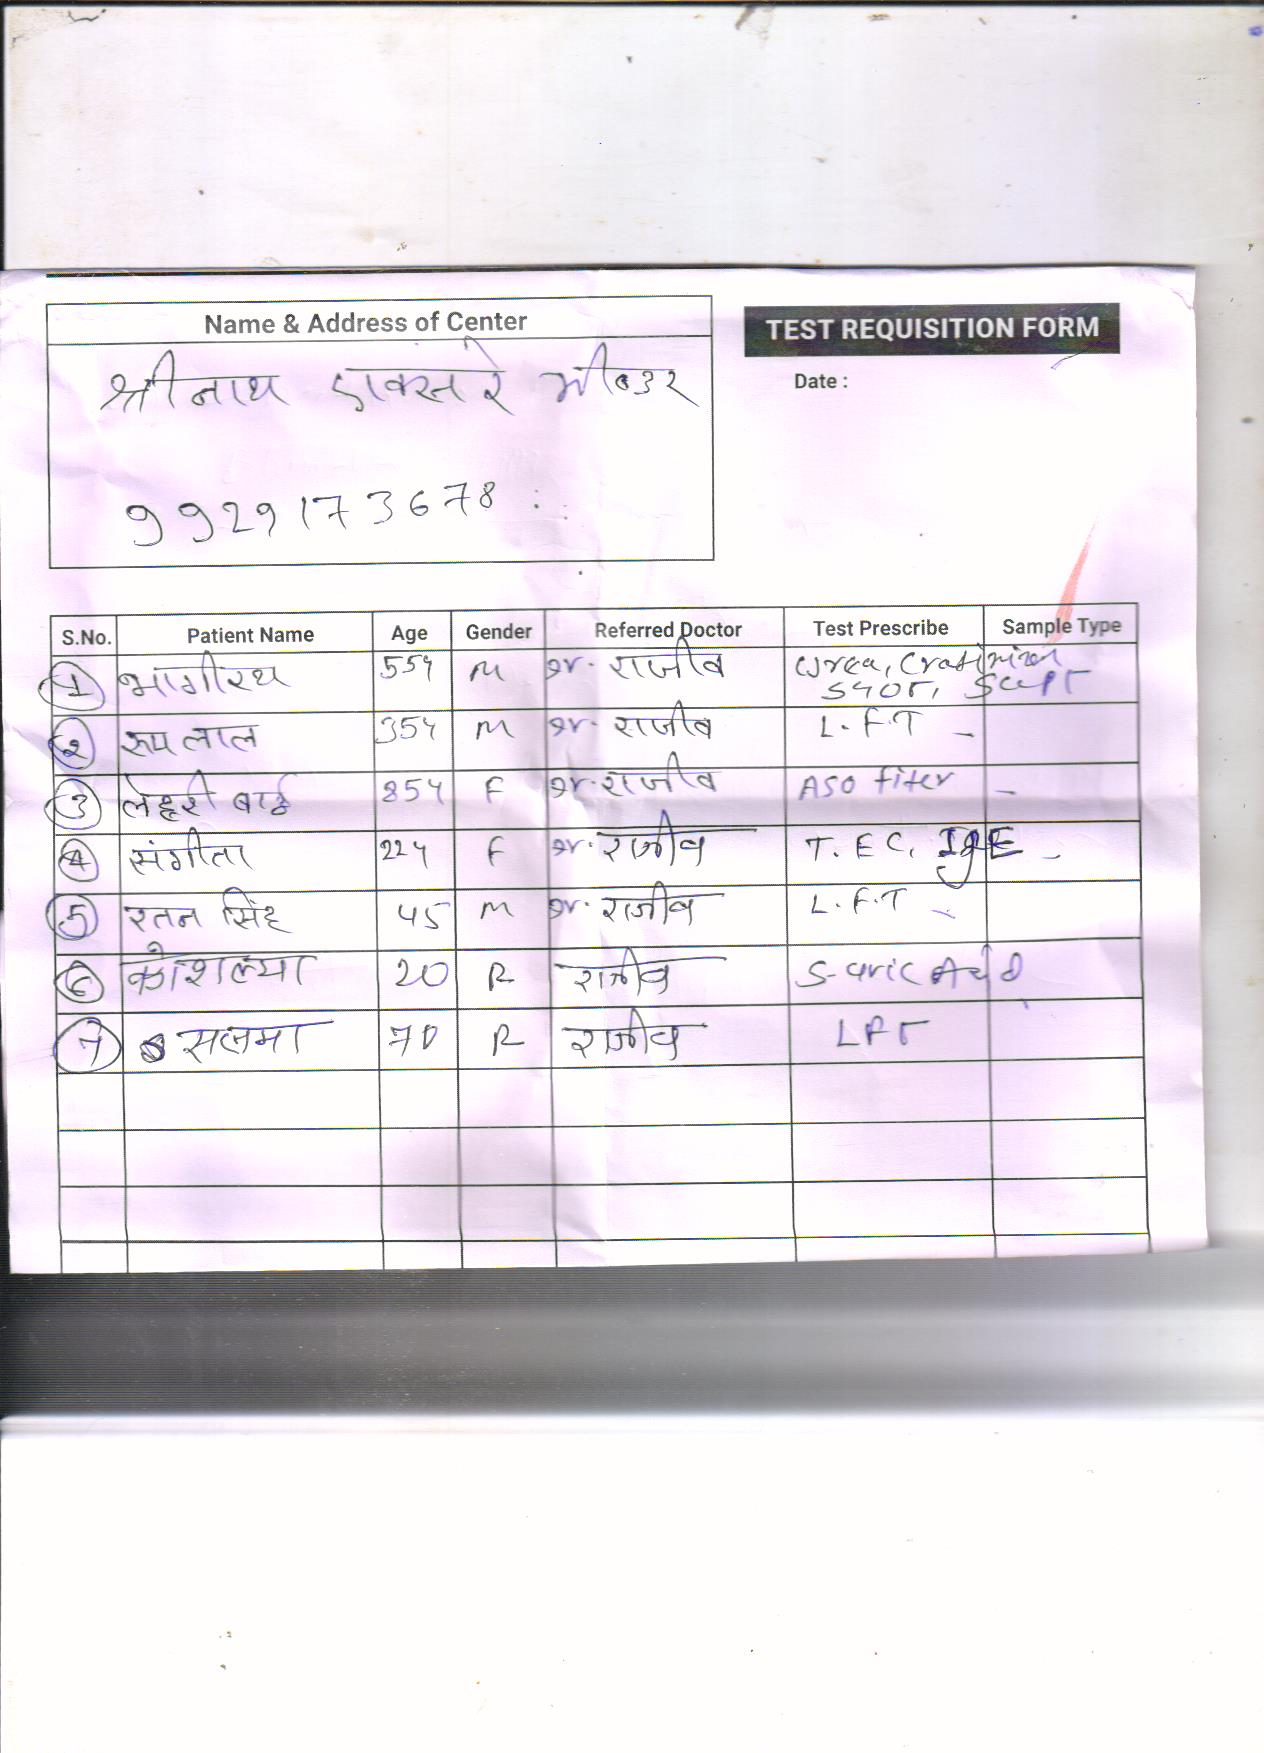 Name & Address of Center
श्रीनाथ भीण्डर
9929173678
TEST REQUISITION FORM
Date :
S.No. Patient Name Age Gender Referred Doctor Test Prescribe Sample Type
1 भागीरथ 55y M Dr. राजीव Urea, SGOT, SGPT
2 रूपलाल 35y M Dr. राजीव L.F.T -
3 लेहरी बाई 85y F Dr. राजीव ASO titer -
4 संगीता 22y F Dr. राजीव T.EC, IgE -
5 रतन सिंह 45 M Dr. राजीव L.F.T -
6 कोशल्या 20 F राजीव S-uric Acid
7 सलमा 70 F राजीव LFT